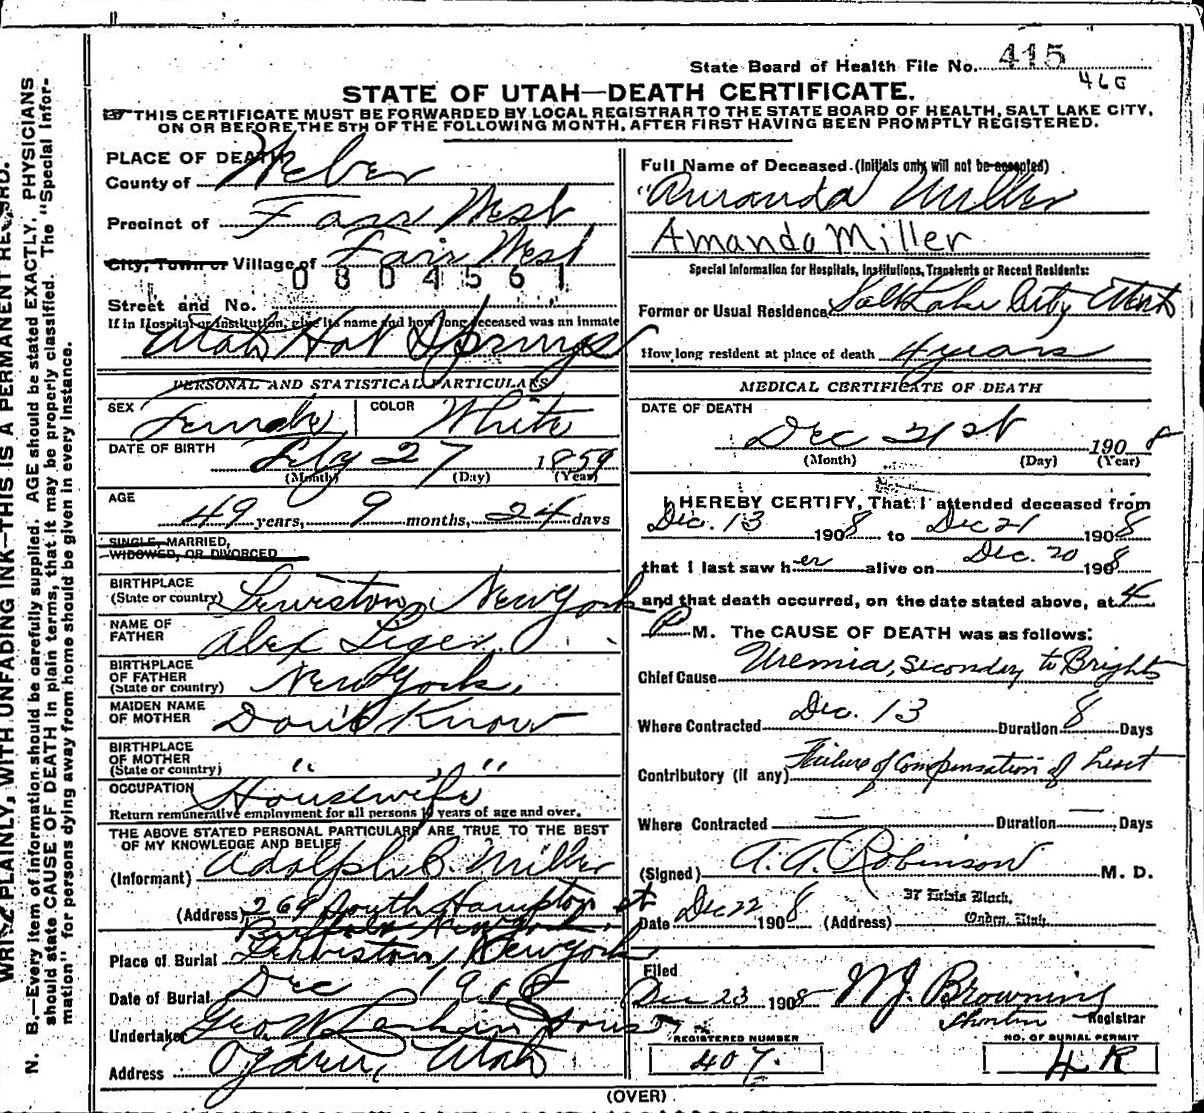 State Board of Health File No. 415
460
STATE OF UTAH—DEATH CERTIFICATE.
THIS CERTIFICATE MUST BE FORWARDED BY LOCAL REGISTRAR TO THE STATE BOARD OF HEALTH, SALT LAKE CITY,
ON OR BEFORE THE 5TH OF THE FOLLOWING MONTH, AFTER FIRST HAVING BEEN PROMPTLY REGISTERED.
WRITE PLAINLY, WITH UNFADING INK—THIS IS A PERMANENT RECORD.
N. B.—Every item of information should be carefully supplied. AGE should be stated EXACTLY. PHYSICIANS
should state CAUSE OF DEATH in plain terms, that it may be properly classified. The "Special Infor-
mation" for persons dying away from home should be given in every instance.
PLACE OF DEATH
County of Weber
Precinct of Farr West
City, Town or Village of Farr West
0804561
Street and No.
If in Hospital or Institution, give its name and how long deceased was an inmate
Utah Hot Springs
PERSONAL AND STATISTICAL PARTICULARS
SEX Female COLOR White
DATE OF BIRTH 27 1859
(Month) (Day) (Year)
AGE
49 years, 9 months, 24 days
SINGLE, MARRIED,
WIDOWED, OR DIVORCED
BIRTHPLACE
(State or country) Lewiston, New York
NAME OF
FATHER Alex
BIRTHPLACE
OF FATHER
(State or country) New York.
MAIDEN NAME
OF MOTHER Don't Know
BIRTHPLACE
OF MOTHER
(State or country) " "
OCCUPATION Housewife
Return remunerative employment for all persons 10 years of age and over.
THE ABOVE STATED PERSONAL PARTICULARS ARE TRUE TO THE BEST
OF MY KNOWLEDGE AND BELIEF
(Informant) Adolph C. Miller
(Address) 269 South Hampton st
Buffalo New York.
Place of Burial Lewiston, New York
Date of Burial Dec 1908
Undertaker Geo W Larkin Sons
Address Ogden, Utah
Full Name of Deceased. (Initials only will not be accepted)
"Amanda Miller
Amanda Miller
Special Information for Hospitals, Institutions, Transients or Recent Residents:
Former or Usual Residence Salt Lake City Utah
How long resident at place of death 4 years
MEDICAL CERTIFICATE OF DEATH
DATE OF DEATH
Dec 21st 1908
(Month) (Day) (Year)
I HEREBY CERTIFY, That I attended deceased from
Dec. 13 1908 to Dec 21 1908
that I last saw her alive on Dec. 20 1908
and that death occurred, on the date stated above, at 4
P M. The CAUSE OF DEATH was as follows:
Chief Cause Uremia, Secondary to Brights
Where Contracted Dec. 13 Duration 8 Days
Contributory (if any) Failure of Compensation of Heart
Where Contracted — Duration — Days
(Signed) A. A. Robinson M. D.
37 Block,
Date Dec 22 1908 (Address) Ogden, Utah.
Filed
Dec 23 1908 W J. Browning
Registrar
REGISTERED NUMBER
407.
NO. OF BURIAL PERMIT
4 R
(OVER)